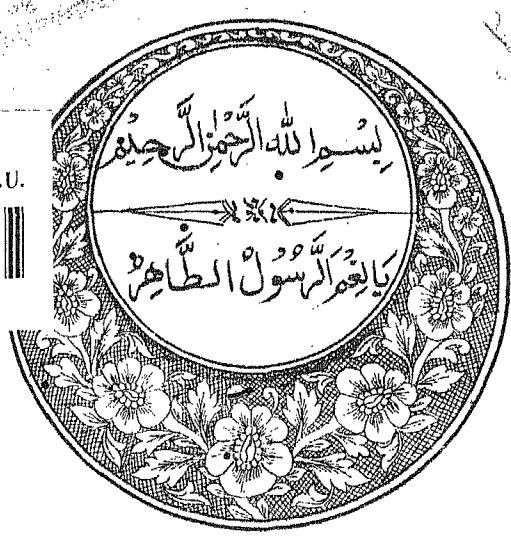 .U.
بِسْمِ اللّٰهِ الرَّحْمٰنِ الرَّحِيْمِ
يَا نِعْمَ الرَّسُوْلُ الطَّاهِرُ